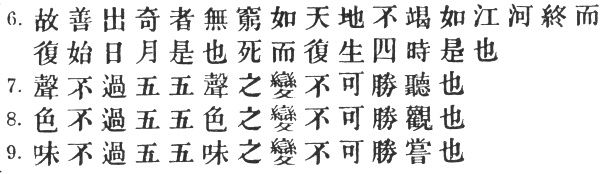 6. 故善出奇者無窮如天地不竭如江河終而
復始日月是也死而復生四時是也
7. 聲不過五五聲之變不可勝聽也
8. 色不過五五色之變不可勝觀也
9. 味不過五五味之變不可勝嘗也